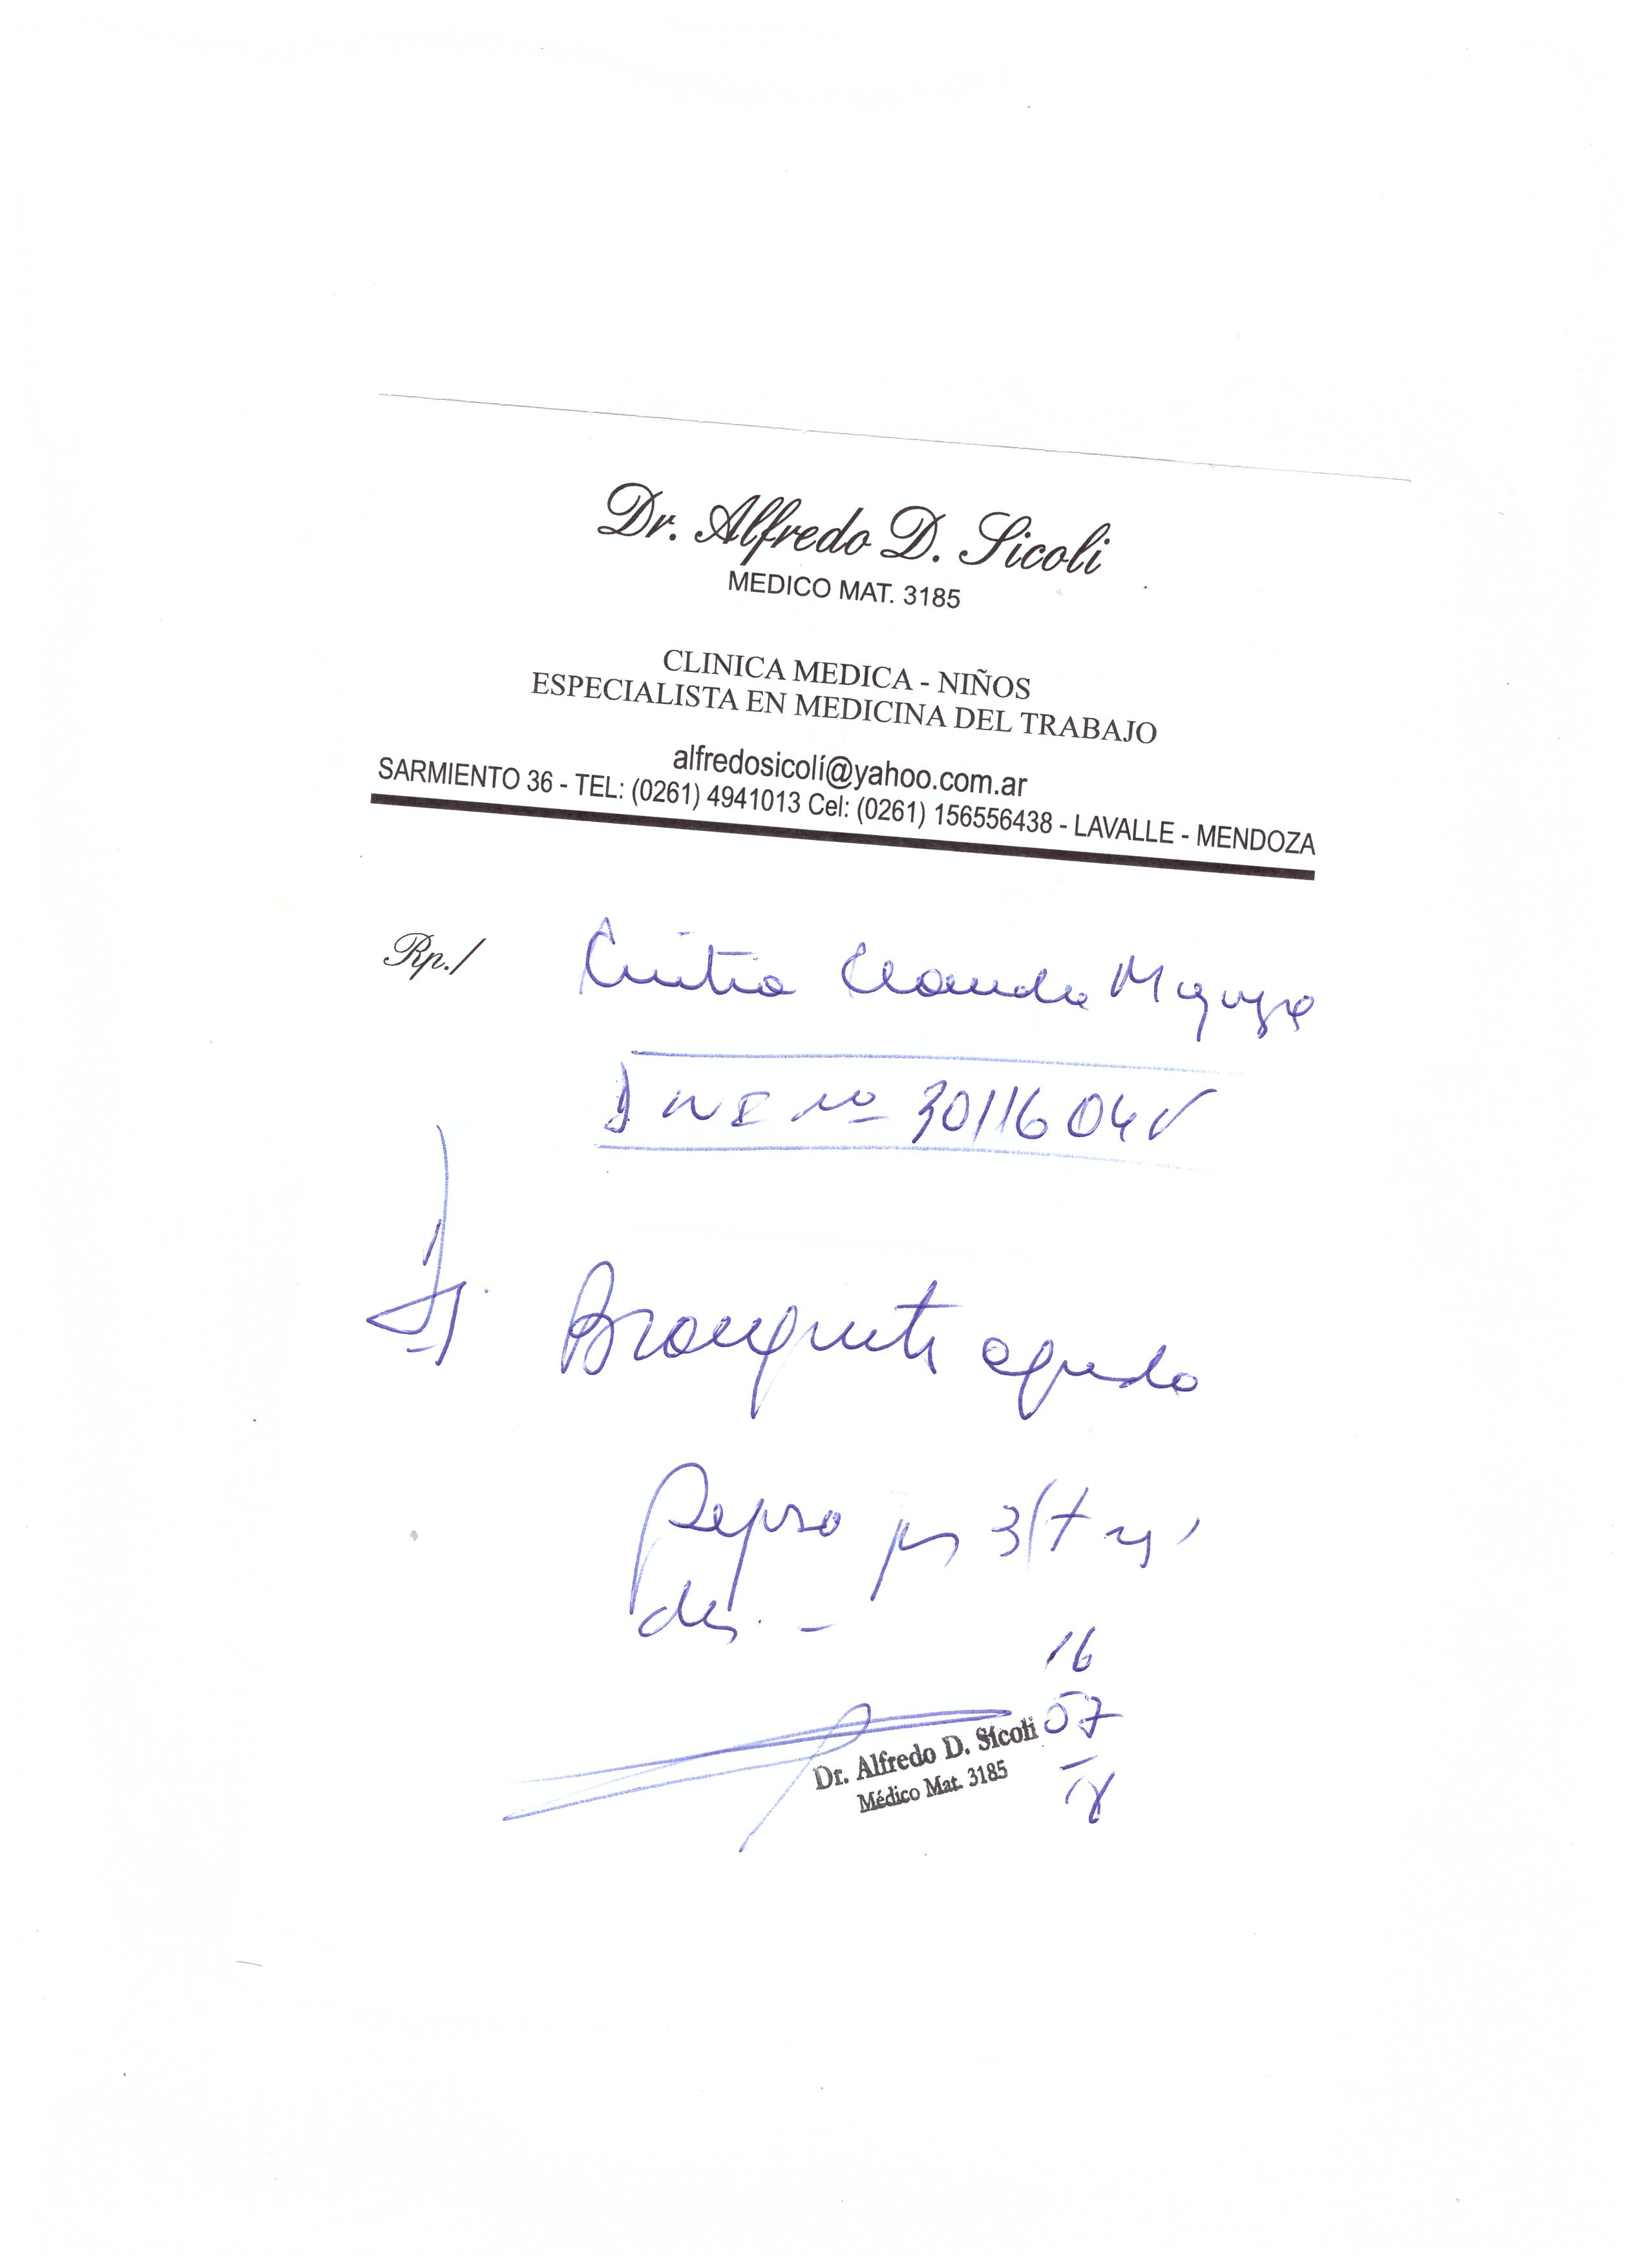 Dr. Alfredo D. Sicoli
MEDICO MAT. 3185
CLINICA MEDICA - NIÑOS
ESPECIALISTA EN MEDICINA DEL TRABAJO
alfredosicolí@yahoo.com.ar
SARMIENTO 36 - TEL: (0261) 4941013 Cel: (0261) 156556438 - LAVALLE - MENDOZA
Rp./ Cintia Claudia
3011604
Bronquitis aguda
Reposo por 3/
16
07
Dr. Alfredo D. Sícoli
Médico Mat. 3185
18